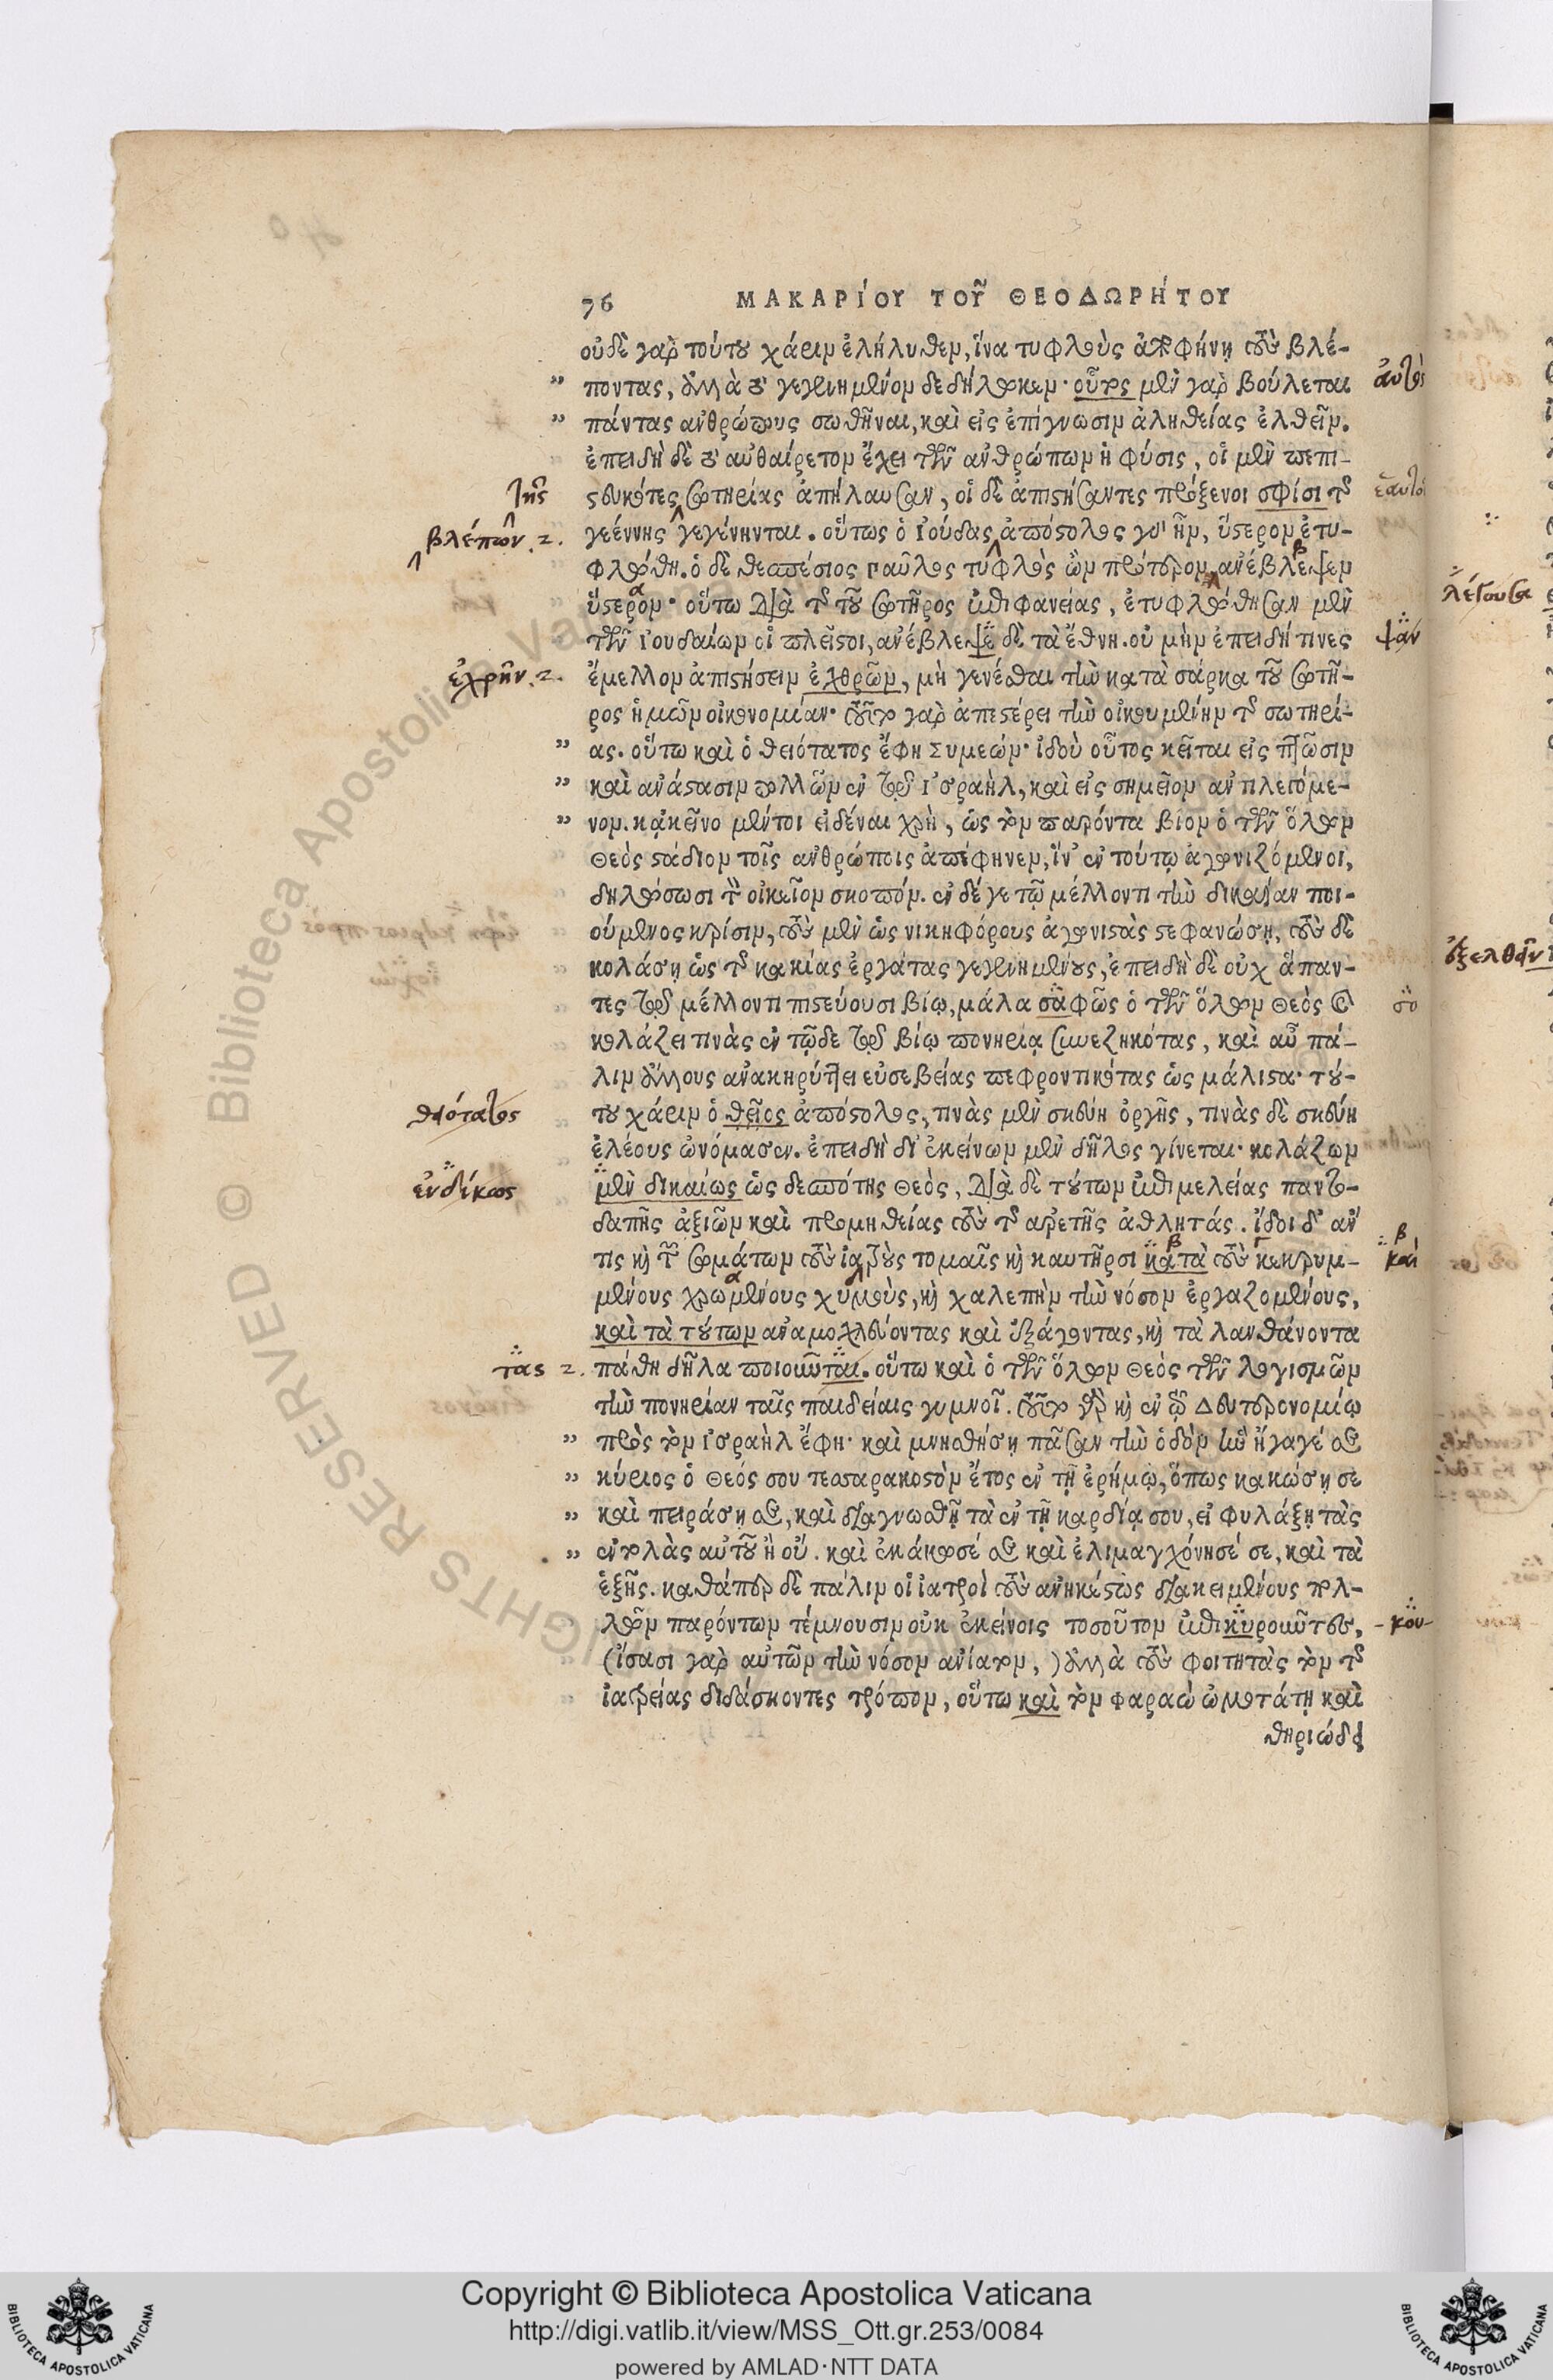 76 ΜΑΚΑΡίΟΥ ΤΟΥ͂ ΘΕΟΔΩΡΉΤΟΥ
οὐδὲ γὰρ τούτου χάριν ἐλήλυθεν, ἵνα τυφλοὺς ἀποφήνῃ τοὺς βλέ-
" ποντας, ἀλλὰ τὸ γεγενημένον δεδήλωκεν· οὗτος μὲν γὰρ βούλεται αὐτὸς
" πάντας ἀνθρώπους σωθῆναι, καὶ εἰς ἐπίγνωσιν ἀληθείας ἐλθεῖν.
ἐπειδὴ δὲ τὸ αὐθαίρετον ἔχει τῶν ἀνθρώπων ἡ φύσις, οἱ μὲν πεπι-
τῆς στευκότες σωτηρίας ἀπήλαυσαν, οἱ δὲ ἀπιστήσαντες πρόξενοι σφίσι τῆς
βλέπων .2. γεέννης γεγένηνται. οὕτως ὁ Ἰούδας ἀπόστολος γοῦν ἦν, ὕστερον ἐτυ-
φλώθη. ὁ δὲ θεσπέσιος Παῦλος τυφλὸς ὢν πρότερον ἀνέβλεψεν
ὕστερον· οὕτω διὰ τῆς τοῦ σωτῆρος ἐπιφανείας, ἐτυφλώθησαν μὲν
τῶν Ἰουδαίων οἱ πλεῖστοι, ἀνέβλεψε δὲ τὰ ἔθνη. οὐ μὴν ἐπειδή τινες ψαν
ἐχρῆν .2. ἔμελλον ἀπιστήσειν ἐχθρῶν, μὴ γενέσθαι τὴν κατὰ σάρκα τοῦ σωτῆ-
ρος ἡμῶν οἰκονομίαν· τοῦτο γὰρ ἀπεστέρει τὴν οἰκουμένην τῆς σωτηρί-
" ας. οὕτω καὶ ὁ θειότατος ἔφη Συμεών· ἰδοὺ οὗτος κεῖται εἰς πτῶσιν
" καὶ ἀνάστασιν πολλῶν ἐν τῷ Ἰσραὴλ, καὶ εἰς σημεῖον ἀντιλεγόμε-
" νον. κἀκεῖνο μέντοι εἰδέναι χρὴ, ὡς τὸν παρόντα βίον ὁ τῶν ὅλων
Θεὸς στάδιον τοῖς ἀνθρώποις ἀπέφηνεν, ἵν' ἐν τούτῳ ἀγωνιζόμενοι,
δηλώσωσι τὸν οἰκεῖον σκοπόν. ἐν δέ γε τῷ μέλλοντι τὴν δικαίαν ποι-
ούμενος κρίσιν, τοὺς μὲν ὡς νικηφόρους ἀγωνιστὰς στεφανώσῃ, τοὺς δὲ
κολάσῃ ὡς τῆς κακίας ἐργάτας γεγενημένους, ἐπειδὴ δὲ οὐχ ἅπαν-
τες τῷ μέλλοντι πιστεύουσι βίῳ, μάλα σαφῶς ὁ τῶν ὅλων Θεὸς καὶ σο
κολάζει τινὰς ἐν τῷδε τῷ βίῳ πονηρίᾳ συνεζηκότας, καὶ αὖ πά-
λιν ἄλλους ἀνακηρύττει εὐσεβείας πεφροντικότας ὡς μάλιστα· τού-
θειότατος του χάριν ὁ θεῖος ἀπόστολος, τινὰς μὲν σκεύη ὀργῆς, τινὰς δὲ σκεύη
ἐλέους ὠνόμασεν. ἐπειδὴ δι' ἐκείνων μὲν δῆλος γίνεται· κολάζων
ἐνδίκως μὲν δικαίως ὡς δεσπότης Θεὸς, διὰ δὲ τούτων ἐπιμελείας παντο-
δαπῆς ἀξιῶν καὶ προμηθείας τοὺς τῆς ἀρετῆς ἀθλητάς. ἴδοι δ' ἄν
τις καὶ τῶν σωμάτων τοὺς ἰατροὺς τομαῖς καὶ καυτῆρσι κατὰ τοὺς κεκρυμ- καὶ
μένους χρωμένους χυμοὺς, καὶ χαλεπὴν τὴν νόσον ἐργαζομένους,
καὶ τὰ τούτων ἀναμοχλεύοντας καὶ ἐξάγοντας, καὶ τὰ λανθάνοντα
τας 2. πάθη δῆλα ποιοῦνται. οὕτω καὶ ὁ τῶν ὅλων Θεὸς τῶν λογισμῶν
τὴν πονηρίαν ταῖς παιδείαις γυμνοῖ. τοῦτο γὰρ καὶ ἐν τῷ Δευτερονομίῳ
" πρὸς τὸν Ἰσραὴλ ἔφη· καὶ μνησθήσῃ πᾶσαν τὴν ὁδὸν ἣν ἤγαγέ σε
" κύριος ὁ Θεός σου τεσσαρακοστὸν ἔτος ἐν τῇ ἐρήμῳ, ὅπως κακώσῃ σε
" καὶ πειράσῃ σε, καὶ διαγνωσθῇ τὰ ἐν τῇ καρδίᾳ σου, εἰ φυλάξῃ τὰς
" ἐντολὰς αὐτοῦ ἢ οὔ. καὶ ἐκάκωσέ σε καὶ ἐλιμαγχόνησέ σε, καὶ τὰ
ἑξῆς. καθάπερ δὲ πάλιν οἱ ἰατροὶ τοὺς ἀνηκέστως διακειμένους πολ-
λῶν παρόντων τέμνουσιν οὐκ ἐκείνοις τοσοῦτον ἐπικυροῦντες, -κου-
(ἴσασι γὰρ αὐτῶν τὴν νόσον ἀνίατον,) ἀλλὰ τοὺς φοιτητὰς τὸν τῆς
ἰατρείας διδάσκοντες τρόπον, οὕτω καὶ τὸν Φαραὼ ὠμοτάτῃ καὶ
θηριώδει
Copyright © Biblioteca Apostolica Vaticana
http://digi.vatlib.it/view/MSS_Ott.gr.253/0084
powered by AMLAD·NTT DATA